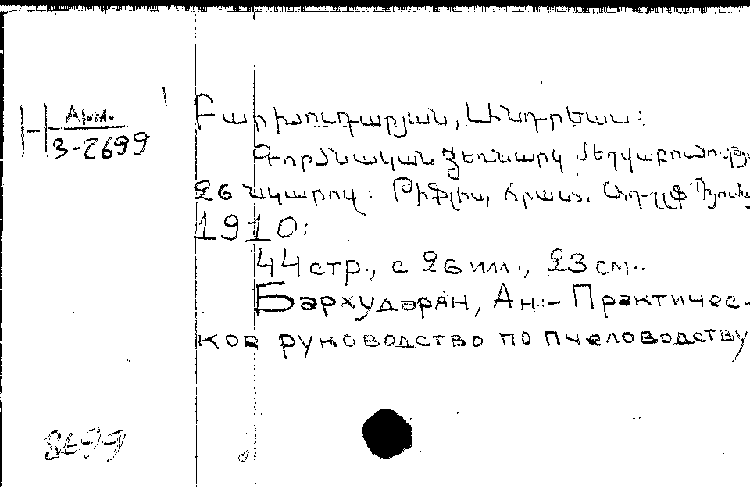 Н Арм.
3-2699
Բարխուդարյան, Անդրեաս:
Գործնական ձեռնարկ մեղվաբուծութ
26 նկարով: Թիֆլիս, հրատ.
1910:
44 стр., с 26 ил., 23 см..
Бархударян, Ан.- Практичес-
кое руководство по пчеловодству